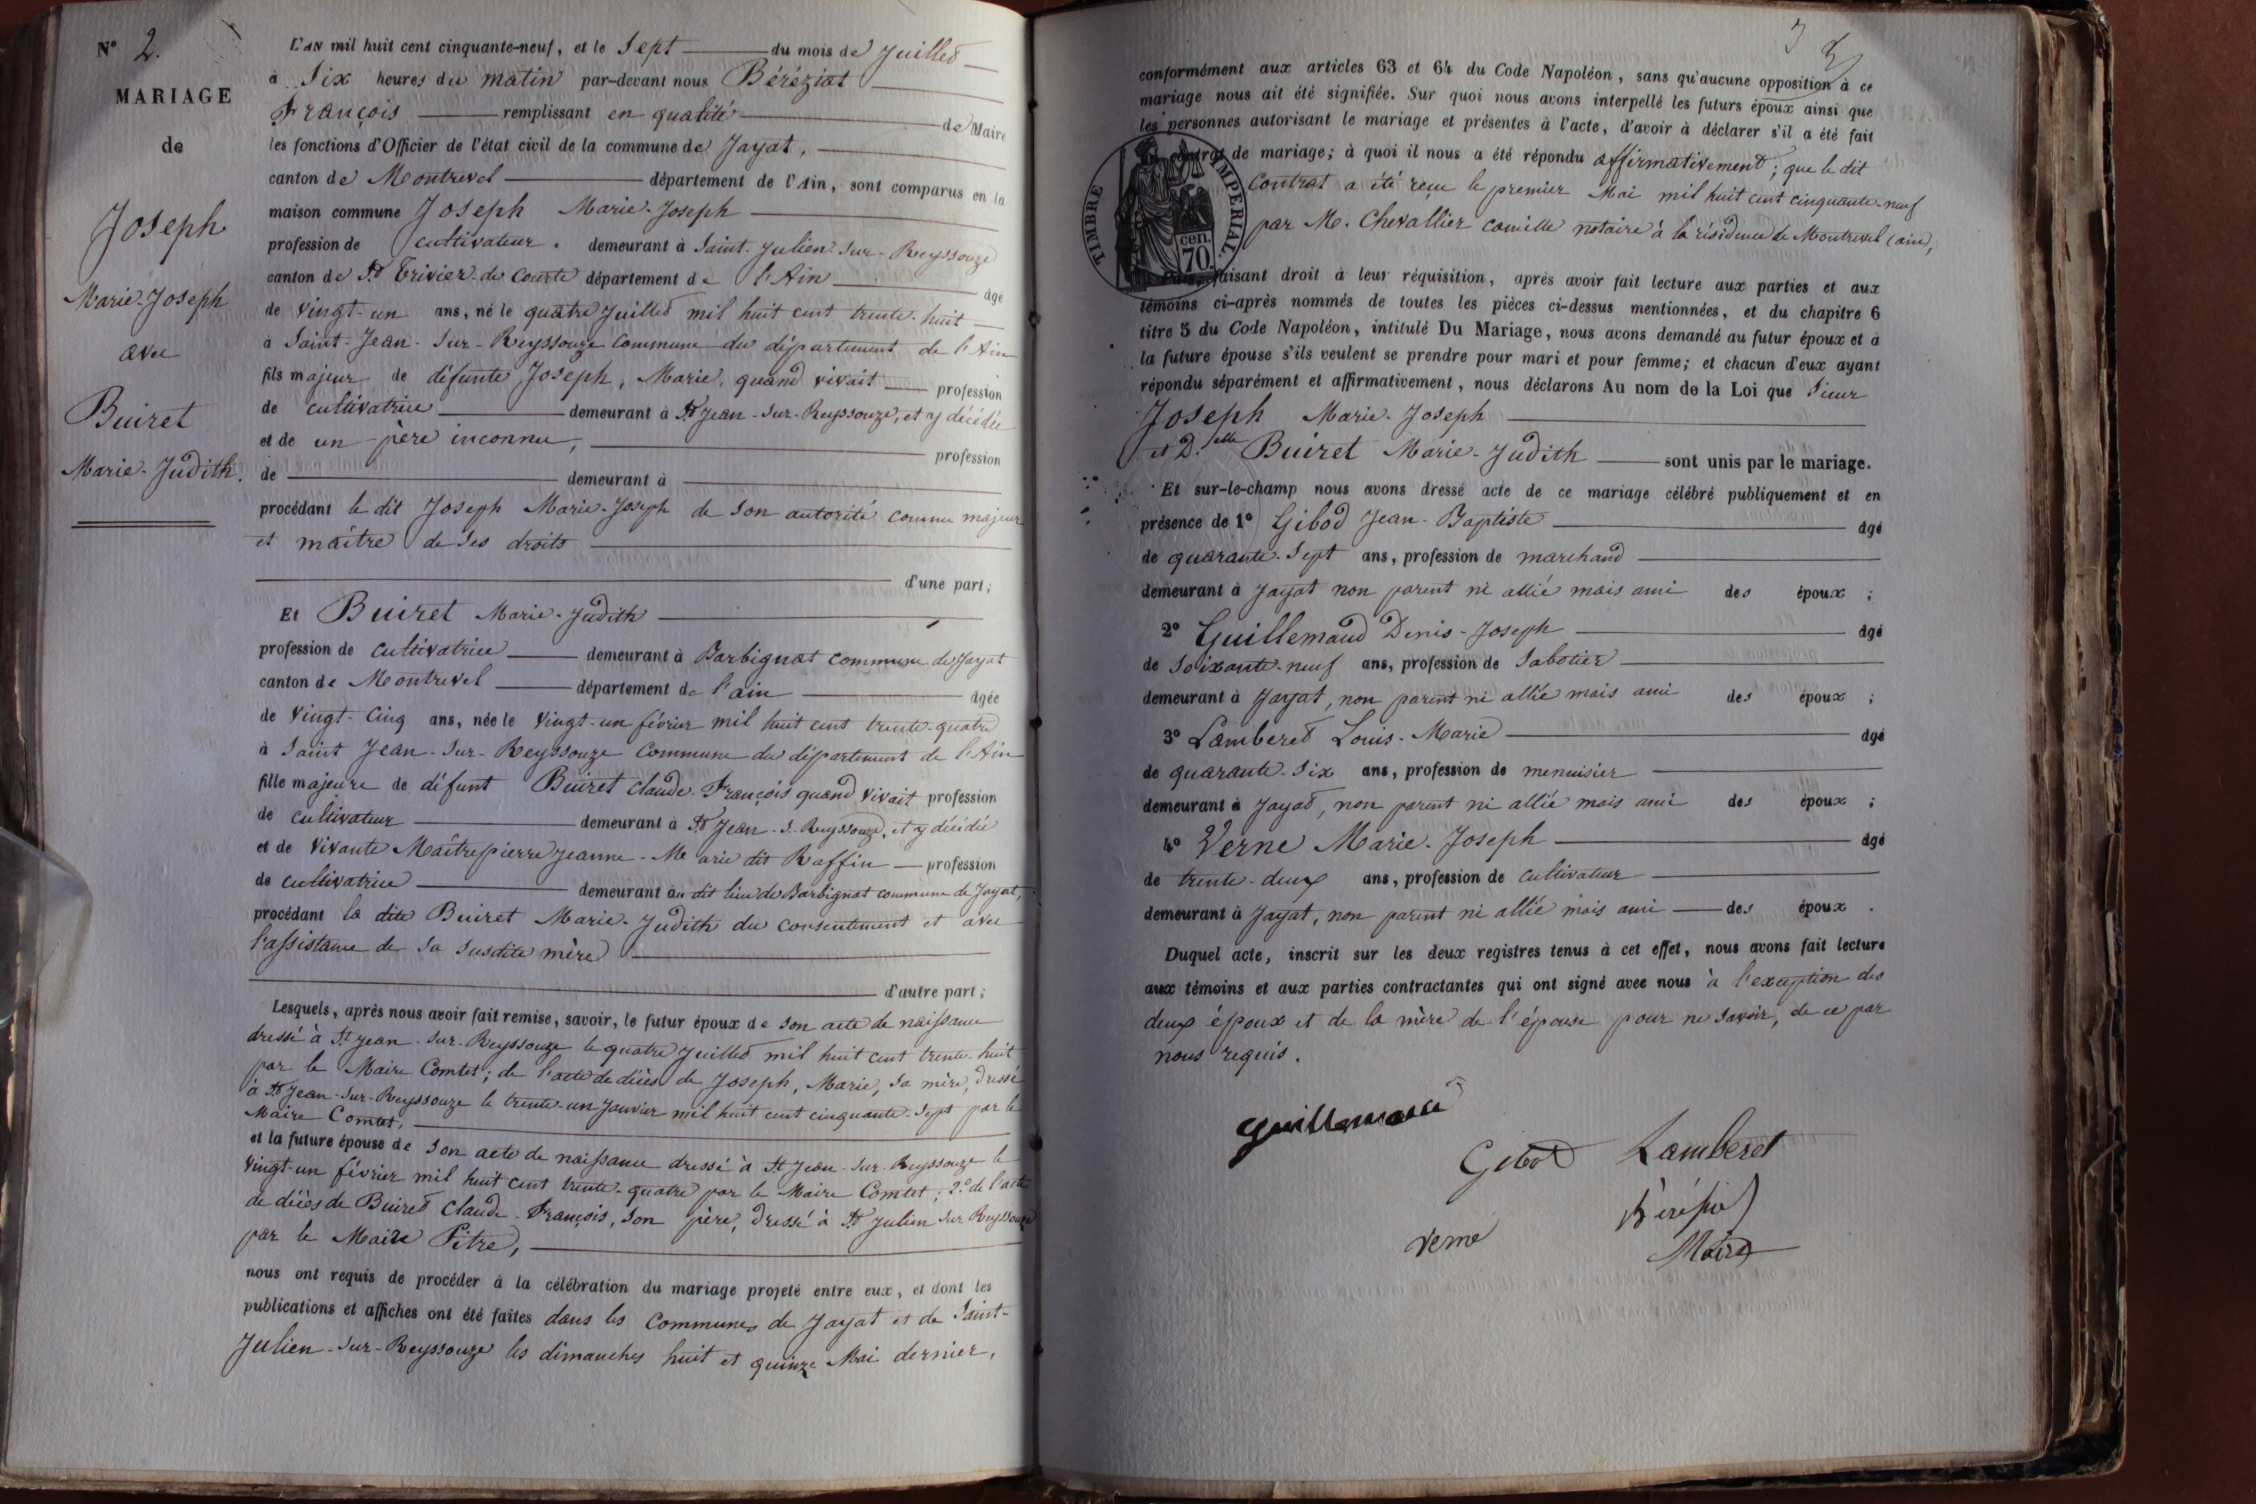 N° 2.
MARIAGE
de
Joseph
Marie-Joseph
avec
Buiret
Marie-Judith.
L'AN mil huit cent cinquante-neuf, et le Sept du mois de Juillet
à Six heures du matin par-devant nous Béréziat
François remplissant en qualité de Maire
les fonctions d'Officier de l'état civil de la commune de Jayat,
canton de Montrevel département de l'Ain, sont comparus en la
maison commune Joseph Marie-Joseph
profession de cultivateur. demeurant à Saint-Julien-Sur-Reyssouze
canton de St Trivier-de Courte département de l'Ain âgé
de Vingt-un ans, né le quatre Juillet mil huit cent trente-huit
à Saint-Jean-Sur-Reyssouze Commune du département de l'Ain
fils majeur de défunte Joseph, Marie, quand vivait profession
de cultivatrice demeurant à St Jean-Sur-Reyssouze, et y décédée
et de un père inconnu, profession
de demeurant à
procédant le dit Joseph Marie-Joseph de son autorité comme majeur
et maître de ses droits
d'une part;
Et Buiret Marie-Judith
profession de cultivatrice demeurant à Barbignat commune de Jayat
canton de Montrevel département de l'ain âgée
de Vingt-Cinq ans, née le Vingt-un février mil huit cent trente-quatre
à Saint Jean-Sur-Reyssouze Commune du département de l'Ain
fille majeure de défunt Buiret Claude-François quand vivait profession
de cultivateur demeurant à St Jean-S-Reyssouze, et y décédé
et de Vivante Maîtrepierre Jeanne-Marie dit Raffin profession
de cultivatrice demeurant au dit lieu de Barbignat commune de Jayat,
procédant la dite Buiret Marie-Judith du consentement et avec
l'assistance de sa susdite mère
d'autre part;
Lesquels, après nous avoir fait remise, savoir, le futur époux de son acte de naissance
dressé à St Jean-Sur-Reyssouze le quatre Juillet mil huit cent trente-huit
par le Maire Comtet; de l'acte de décès de Joseph, Marie, sa mère, dressé
à St Jean-Sur-Reyssouze le trente-un Janvier mil huit cent cinquante-sept par le
Maire Comtet,
et la future épouse de son acte de naissance dressé à St Jean-Sur-Reyssouze le
Vingt-un février mil huit cent trente-quatre par le Maire Comtet; 2° de l'acte
de décès de Buiret Claude-François, son père, dressé à St Julien Sur Reyssouze
par le Maire Pitre,
nous ont requis de procéder à la célébration du mariage projeté entre eux, et dont les
publications et affiches ont été faites dans les Communes de Jayat et de Saint-
Julien-Sur-Reyssouze les dimanches huit et quinze Mai dernier,
conformément aux articles 63 et 64 du Code Napoléon, sans qu'aucune opposition à ce
mariage nous ait été signifiée. Sur quoi nous avons interpellé les futurs époux ainsi que
les personnes autorisant le mariage et présentes à l'acte, d'avoir à déclarer s'il a été fait
contrat de mariage; à quoi il nous a été répondu affirmativement; que le dit
Contrat a été reçu le premier Mai mil huit cent cinquante-neuf
par Me. Chevallier Camille notaire à la résidence de Montrevel (ain),
TIMBRE IMPERIAL.
cen.
70.
faisant droit à leur réquisition, après avoir fait lecture aux parties et aux
témoins ci-après nommés de toutes les pièces ci-dessus mentionnées, et du chapitre 6
titre 5 du Code Napoléon, intitulé Du Mariage, nous avons demandé au futur époux et à
la future épouse s'ils veulent se prendre pour mari et pour femme; et chacun d'eux ayant
répondu séparément et affirmativement, nous déclarons Au nom de la Loi que Sieur
Joseph Marie-Joseph
et Delle Buiret Marie-Judith sont unis par le mariage.
Et sur-le-champ nous avons dressé acte de ce mariage célébré publiquement et en
présence de 1° Gibod Jean-Baptiste âgé
de quarante-sept ans, profession de marchand
demeurant à Jayat non parent ni allié mais ami des époux ;
2° Guillemaud Denis-Joseph âgé
de soixante-neuf ans, profession de Sabotier
demeurant à Jayat, non parent ni allié mais ami des époux ;
3° Lamberet Louis-Marie âgé
de quarante-six ans, profession de menuisier
demeurant à Jayat, non parent ni allié mais ami des époux ;
4° Verne Marie-Joseph âgé
de trente-deux ans, profession de Cultivateur
demeurant à Jayat, non parent ni allié mais ami des époux .
Duquel acte, inscrit sur les deux registres tenus à cet effet, nous avons fait lecture
aux témoins et aux parties contractantes qui ont signé avec nous à l'exception des
deux époux et de la mère de l'épouse pour ne savoir, de ce par
nous requis.
Guillemaud
Gibod Lamberet
Verne
Béréziat
Maire